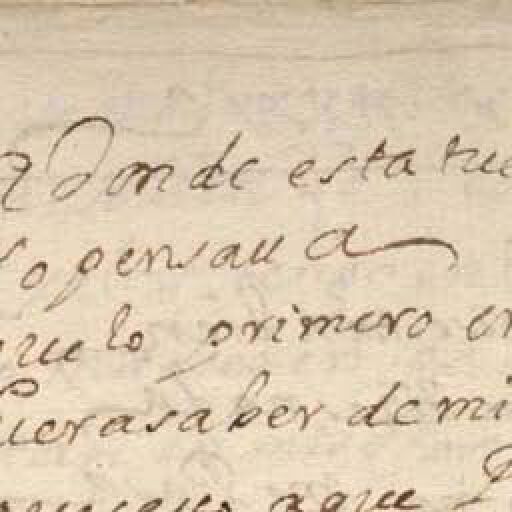 Donde esta tue
o pensaua
que lo primero en
uiera saber de mi
aqui